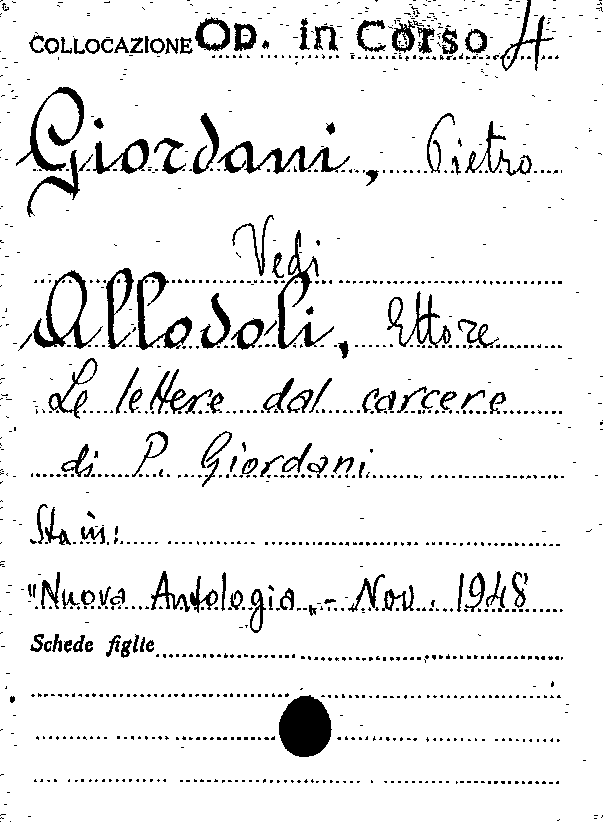 COLLOCAZIONE Op. in Corso 4
Giordani, Pietro
Vedi
Allodoli, Ettore
Le lettere dal carcere
di P. Giordani
Sta in:
"Nuova Antologia„ - Nov. 1948
Schede figlie